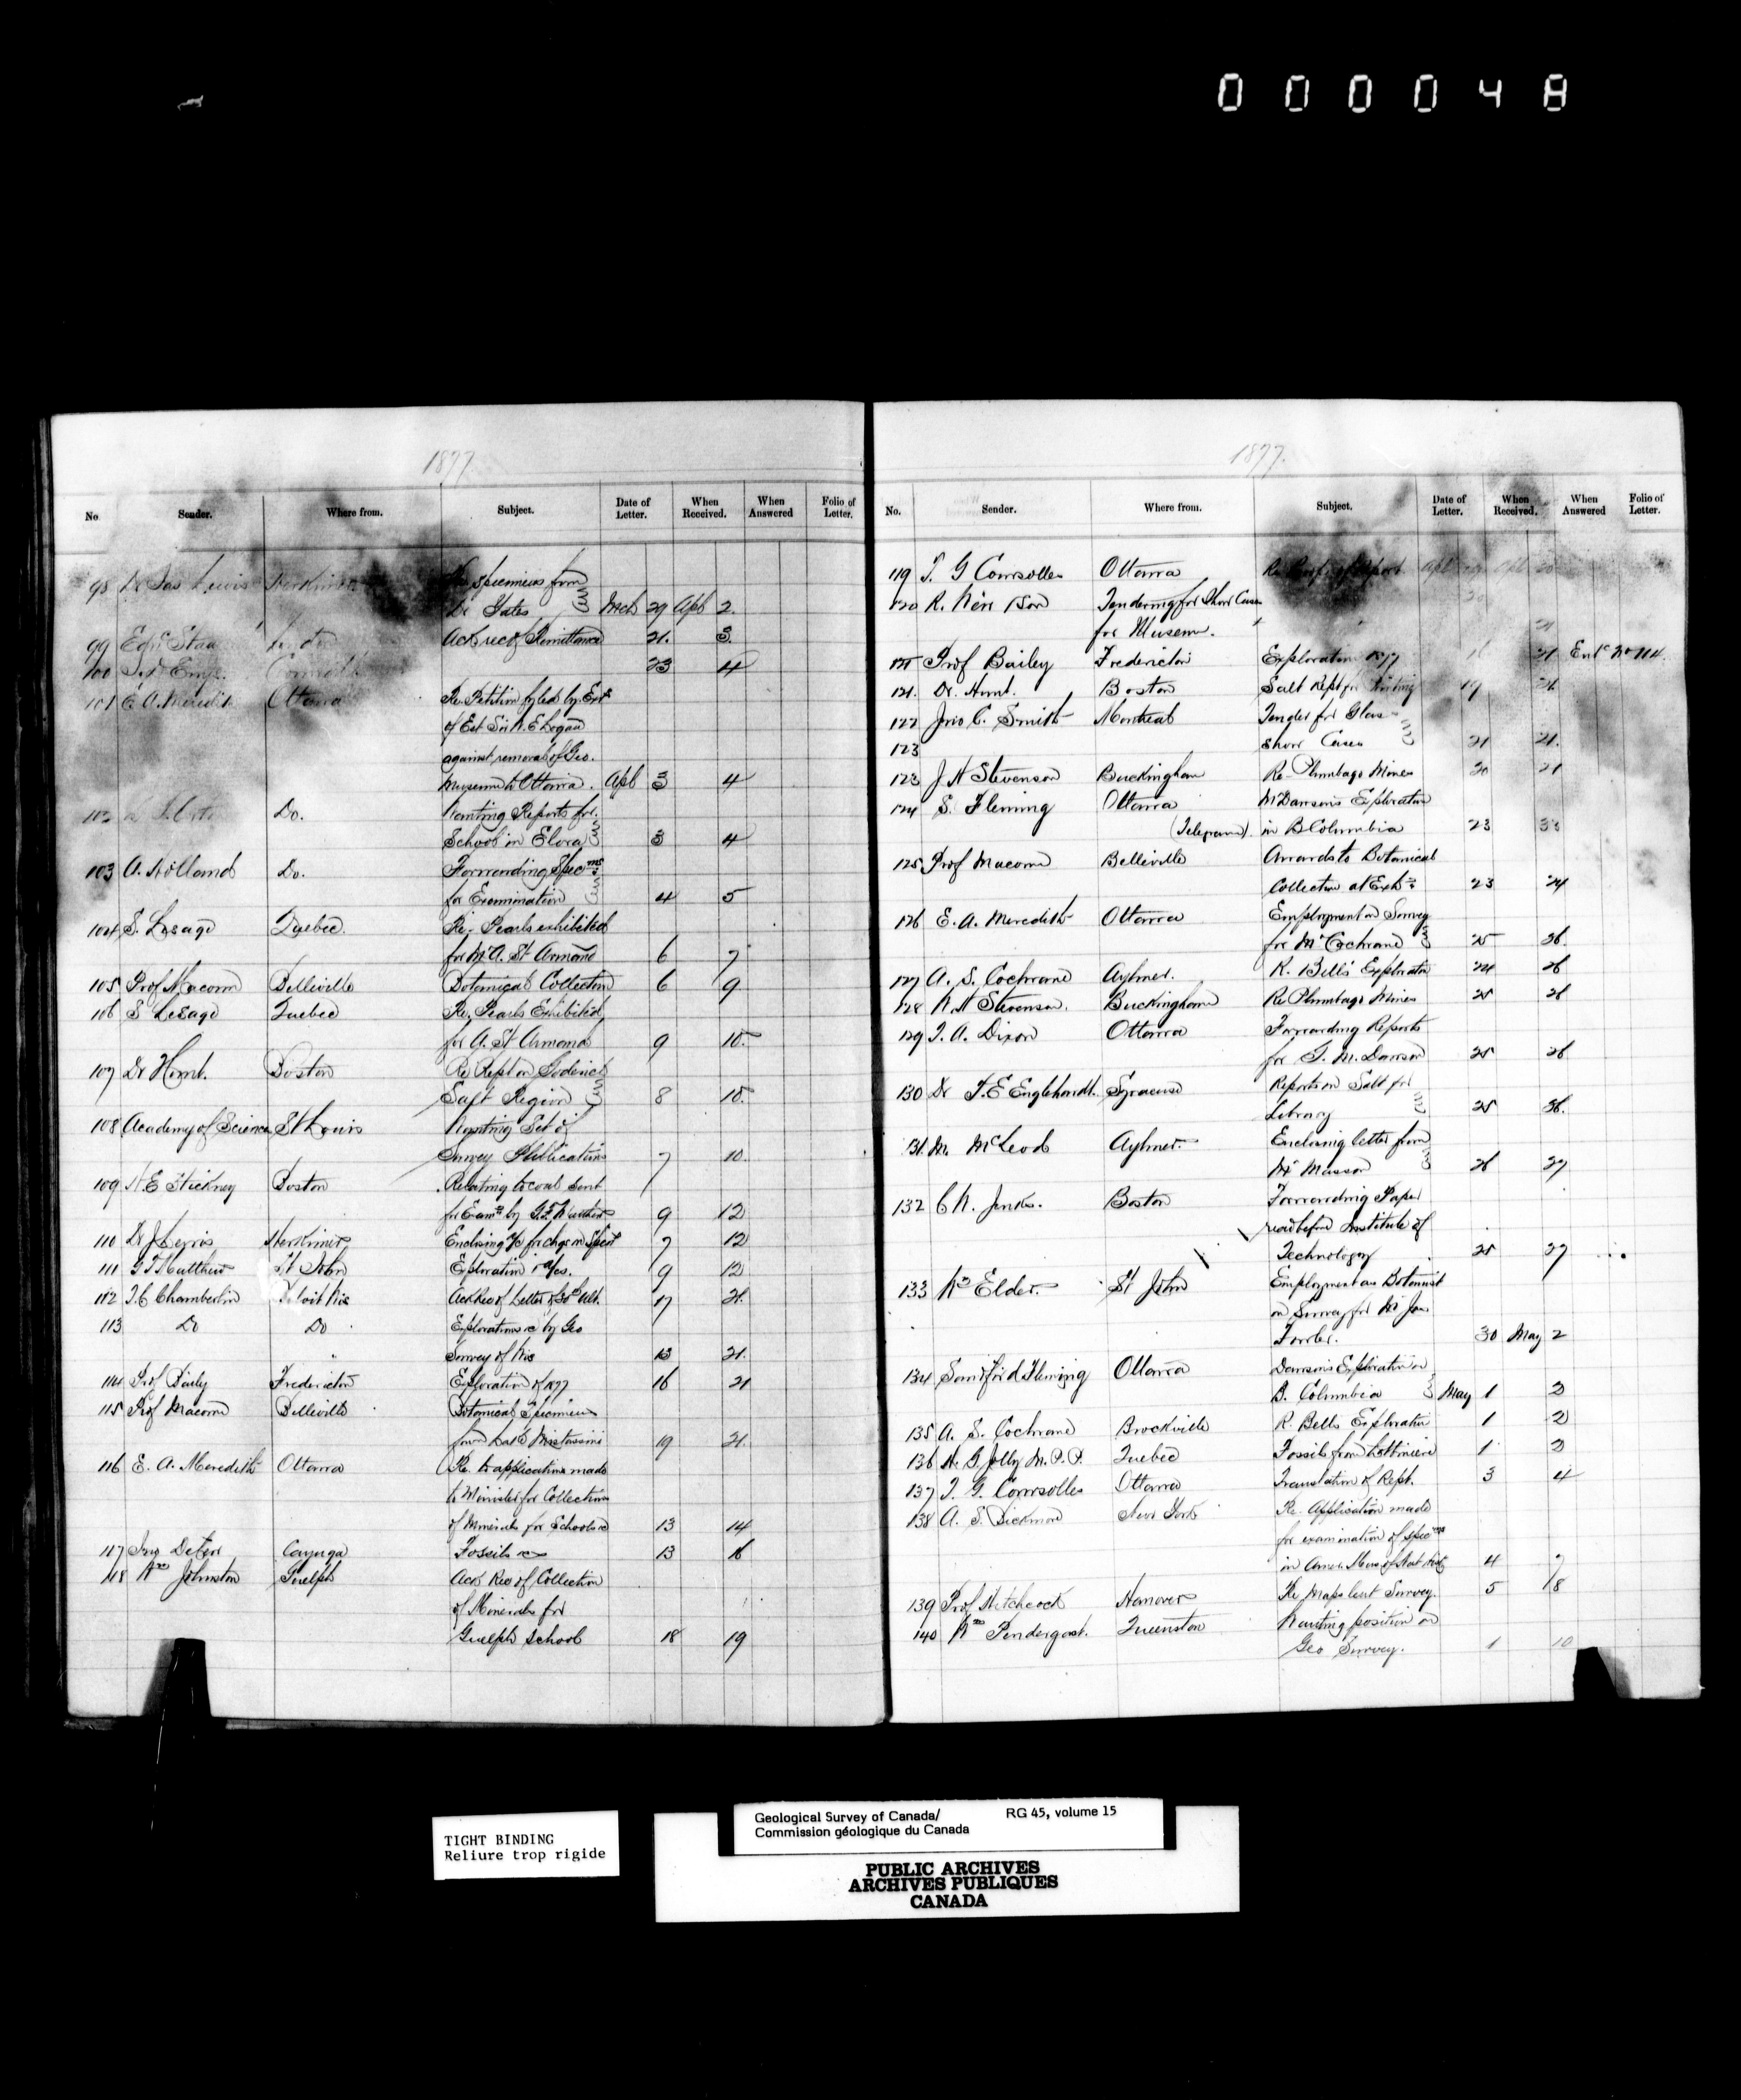 000048
1877
No. Sender. Where from. Subject. Date of Letter. When Received. When Answered Folio of Letter.
98 Dr Jas Lewis Herkimer Re specimens from
Dr Yates Mch 29 Apl 2.
99 Ack rec of Remittance 21. 3.
100 23 4
101 E. A. Meredith Ottawa Re Petition fyled by Ext
of Est Sir W. E Logan
against removal of Geo.
Museum to Ottawa. Apl 3 4
102 Do. Wanting Reports for
School in Elora 3 4
103 A. Holland Do. Forwarding Specms
for Examination 4 5
104 S. Lesage Quebec. Re. Pearls exhibited
for Mr A. St Armand 6 7
105 Prof Macoun Belleville Botanical Collection 6 9
106 S Lesage Quebec Re. Pearls Exhibited
for A. St Armand 9 10.
107 Dr Hunt. Boston Re Rept on Goderich
Salt Region 8 10.
108 Academy of Science St Louis Wanting Set of
Survey Publications 7 10.
109 Boston Relating to coal sent
for Examn by G. F. Matthew 9 12
110 Dr J Lewis Herkimer Enclosing a/c for chgs on Spect 7 12
111 G F Matthew St John Exploration 9 12
112 T. C Chamberlin Beloit Wis Ack Rec of Letter of 30th Ult. 17 21.
113 Do Do Explorations &c by Geo
Survey of Wis 13 21.
114 Prof Baily Fredericton Exploration of 1877 16 21
115 Prof Macoun Belleville Botanical Specimens
from Lake Mistassini 19 21.
116 E. A. Meredith Ottawa Re. to application made
to Minister for Collections
of Minerals for Schools &c 13 14
117 Jno Cayuga Fossils &c 13 16
118 Wm Johnston Guelph Ack Rec of Collection
of Minerals for
Guelph School 18 19
1877.
No. Sender. Where from. Subject. Date of Letter. When Received. When Answered Folio of Letter.
119 T. G Coursolles Ottawa Re Report Apl Apl 20
120 R. Tendering for Show Cases
for Museum. 21
121 Prof Bailey Fredericton Exploration 1877 16 21 Entd No 114.
121. Dr. Hunt. Boston Salt Rept for Printing 19 21.
122 Jno C. Smith Montreal Tender for Glass
123 Show Cases 21 21.
123 J H Stevenson Buckingham Re Plumbago Mines 20 21
124 S. Fleming Ottawa Mr Dawson's Exploration
(Telegram). in B Columbia 23 23
125 Prof Macoun Belleville Awards to Botanical
Collection at Exhn 23 24
126 E. A. Meredith Ottawa Employment on Survey
for Mr Cochrane 25 26.
127 A. S. Cochrane Aylmer. R. Bell's Exploration 24 26
128 W. H Stevenson. Buckingham Re Plumbago Mines 25 26
129 F. A. Dixon Ottawa Forwarding Reports
for G. M. Dawson 25 26
130 Dr F. E Englehardt. Syracuse Reports on Salt for
Library 25 26.
131. M. McLeod Aylmer. Enclosing letter from
Mr Musson 26 27
132 C W. Jenks. Boston Forwarding Paper
read before Institute of
Technology 25 27
133 Wm Elder. St John Employment as Botanist
on Survey for Mr Jas
Fowler. 30 May 2
134 Sandford Fleming Ottawa Dawsons Exploration in
B. Columbia May 1 2
135 A. S. Cochrane Brockville R. Bells Exploration 1 2
136 H. G. Jolly M. P. P. Quebec Fossils from Lotbiniere 1 2
137 T. G. Coursolles Ottawa Translation of Rept. 3 4
138 A. S. Bickmore New York Re. Application made
for examination of specms
in Amer. Mus of Nat Hist 4 7
139 Prof Hitchcock Hanover Re Maps lent Survey. 5 8
140 Wm Pendergast. Queenston Wanting position on
Geo Survey. 1 10
TIGHT BINDING
Reliure trop rigide
Geological Survey of Canada/ RG 45, volume 15
Commission géologique du Canada
PUBLIC ARCHIVES
ARCHIVES PUBLIQUES
CANADA